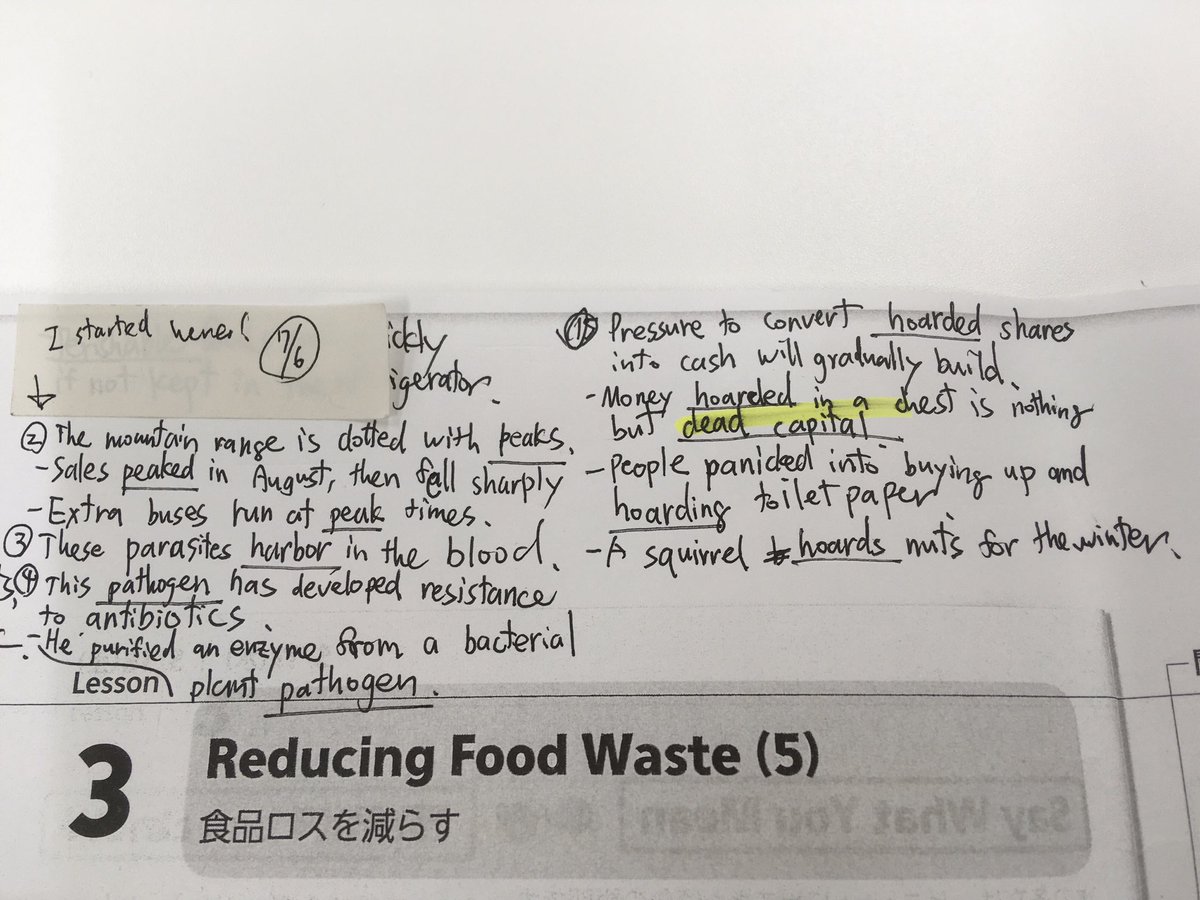 I started here!
17/6
iddly
igerator.
② The mountain range is dotted with peaks.
- Sales peaked in August, then fell sharply
- Extra buses run at peak times.
③ These parasites harbor in the blood.
④ This pathogen has developed resistance
to antibiotics.
- He purified an enzyme from a bacterial
plant pathogen.
⑮ Pressure to convert hoarded shares
into cash will gradually build.
- Money hoarded in a chest is nothing
but dead capital.
- People panicked into buying up and
hoarding toilet paper
- A squirrel hoards nuts for the winter.
Lesson
3
Reducing Food Waste (5)
食品ロスを減らす
Say What You Mean